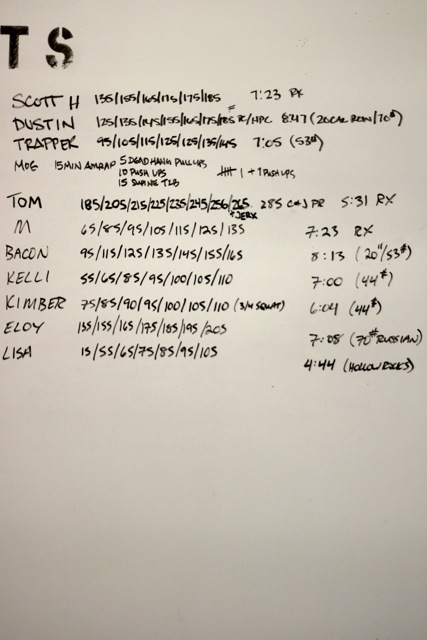 TS
SCOTT H 135/155/165/175/175/185 7:23 RX
DUSTIN 125/135/145/155/165/175/185 PC/HPC 8:47 (20CAL ROW/70#)
TRAPPER 95/105/115/125/125/135/145 7:05 (53#)
MOG 15 MIN AMRAP 5 DEADHANG PULLUPS
10 PUSH UPS 1 + 7 PUSH UPS
15 SUPINE T2B
TOM 185/205/215/225/235/245/256/265 285 C&J PR 5:31 RX
+JERK
M 65/85/95/105/115/125/135 7:23 RX
BACON 95/115/125/135/145/155/165 8:13 (20"/53#)
KELLI 55/65/85/95/100/105/110 7:00 (44#)
KIMBER 75/85/90/95/100/105/110 (3/4 SQUAT) 6:04 (44#)
ELOY 135/155/165/175/185/195/205 7:08 (70# RUSSIAN)
LISA 15/55/65/75/85/95/105 4:44 (HOLLOW ROCKS)